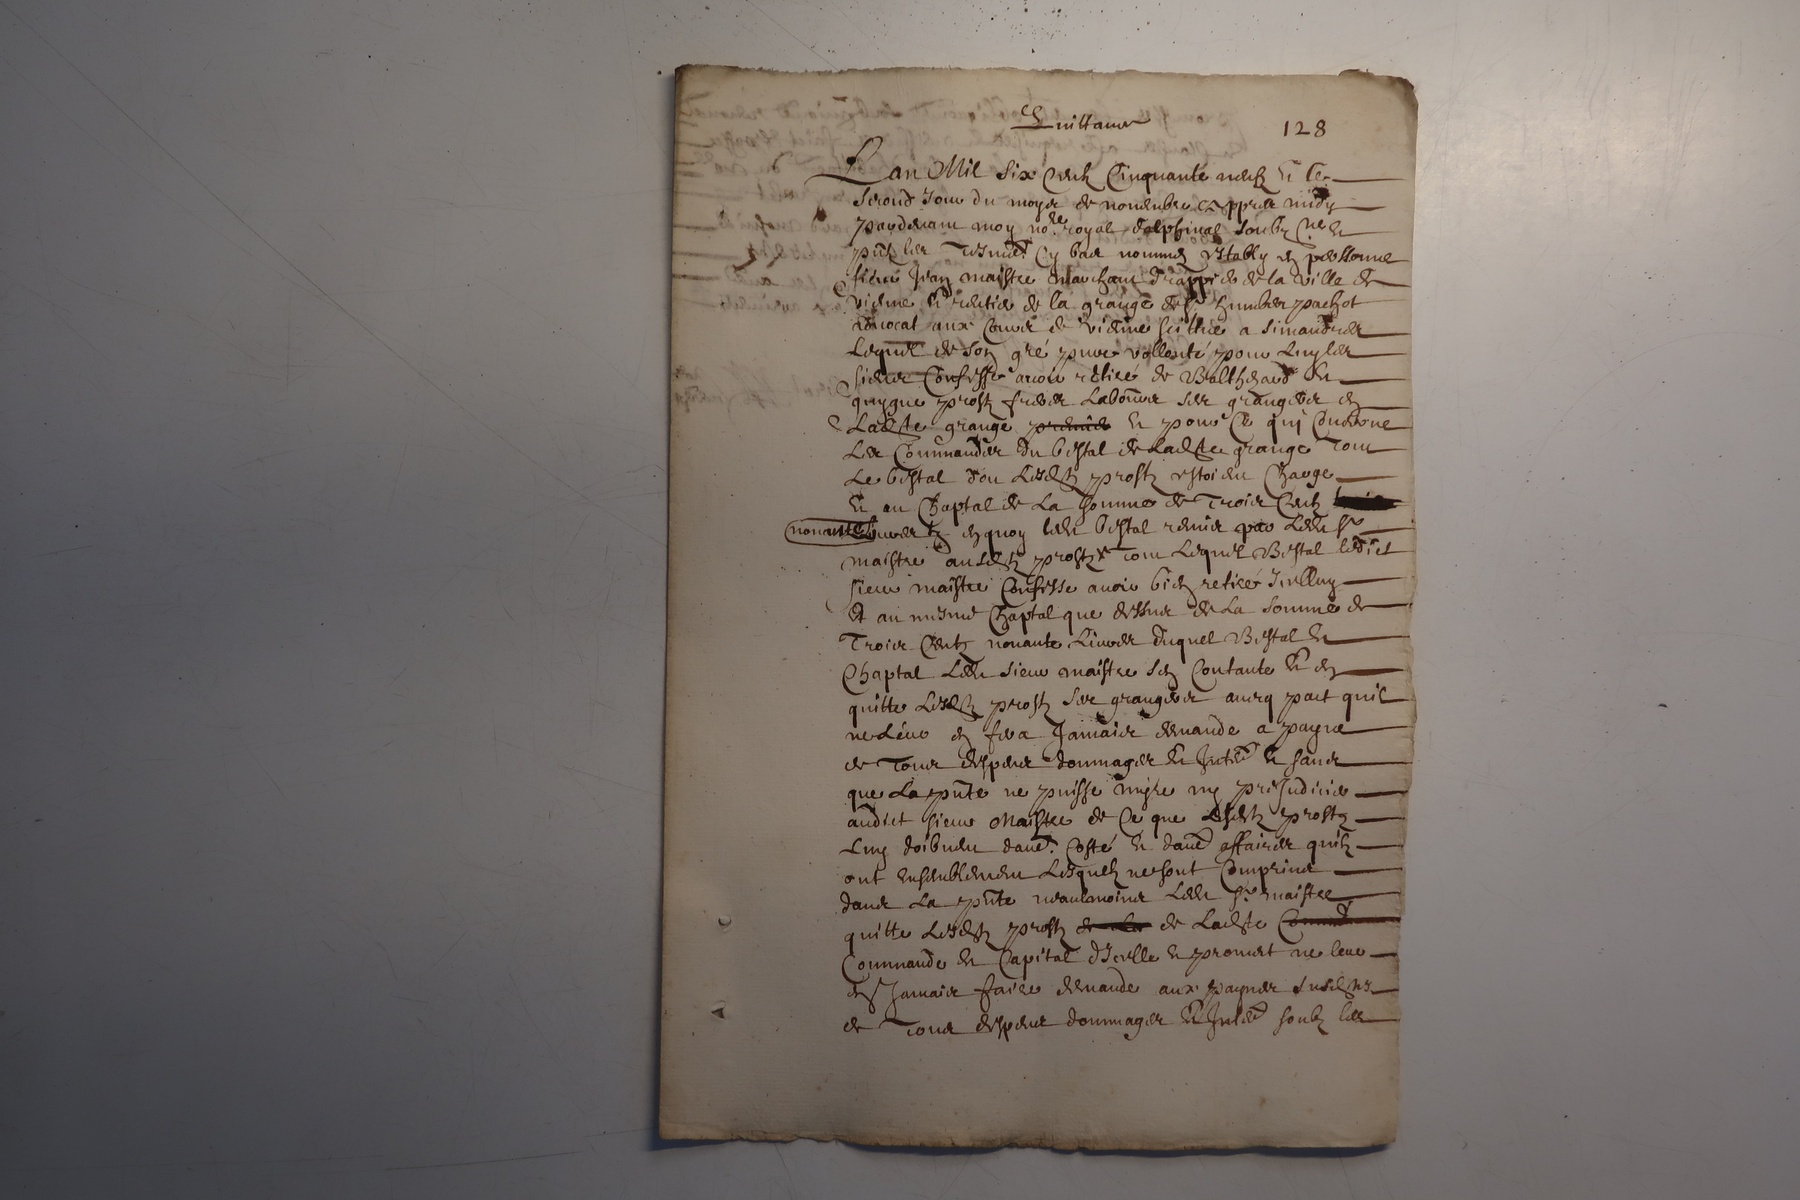 Quittance
128
Lan Mil Six Centz Cinquante neufz & le
Second Jour du moyes de nouembre Appres midy
pardeuant moy no.re royal dalphinal soubz.ne &
pñtz les Tesmę. Cy bas nommes estably en personne
sieur Jean maistre marchant drappier de la Ville de
Vienne & rentier de la grange de sr humber pachot
aduocat aux Cours de Vienne scittue a simandres
Lequel de son gré pure vollonté pour Luy les
siens Confesse auoir retiré de Balthezard &
prostz freres Labours ses grangers en
Ladte grange & pour Ce qui Concerne
Les Commandes du bestal de Ladte grange Tout
Le bestal dou Lesdtz prostz estoient Charge
& au Chaptal de La somme de Trois Centz
nonante Liures en quoy ledt bestal remis par Ledt sr
maistre ausdtz prostz Tout Lequel Bestal ledict
sieur maistre Confesse auoir bien retiré Jcelluy
Et au mesme Chaptal que dessus de La somme de
Trois Centz nonante Liures duquel Bestal &
Chaptal Ledt sieur maistre sen Contante & en
quitte Lesdtz prostz ses grangers auecq pact quil
ne Leur en fera Jamais demande a payne
de Tous despens dommages & Intes & sans
que La pñte ne puisse nuyre ny preJudicier
audict sieur Maistre de Ce que Lesdtz prostz
Luy doibuent daue. Costé & daue affaires quilz
ont ensemblement Lesquelz ne sont Comprins
dans La pñte neantmoins Ledt sr maistre
quitte Lesdtz prostz de Ladte
Commande & Capital dJcelle & promet ne leur
en Jamais faire demande aux paynes susdtes
de Tous despens dommages & Intes soubz les